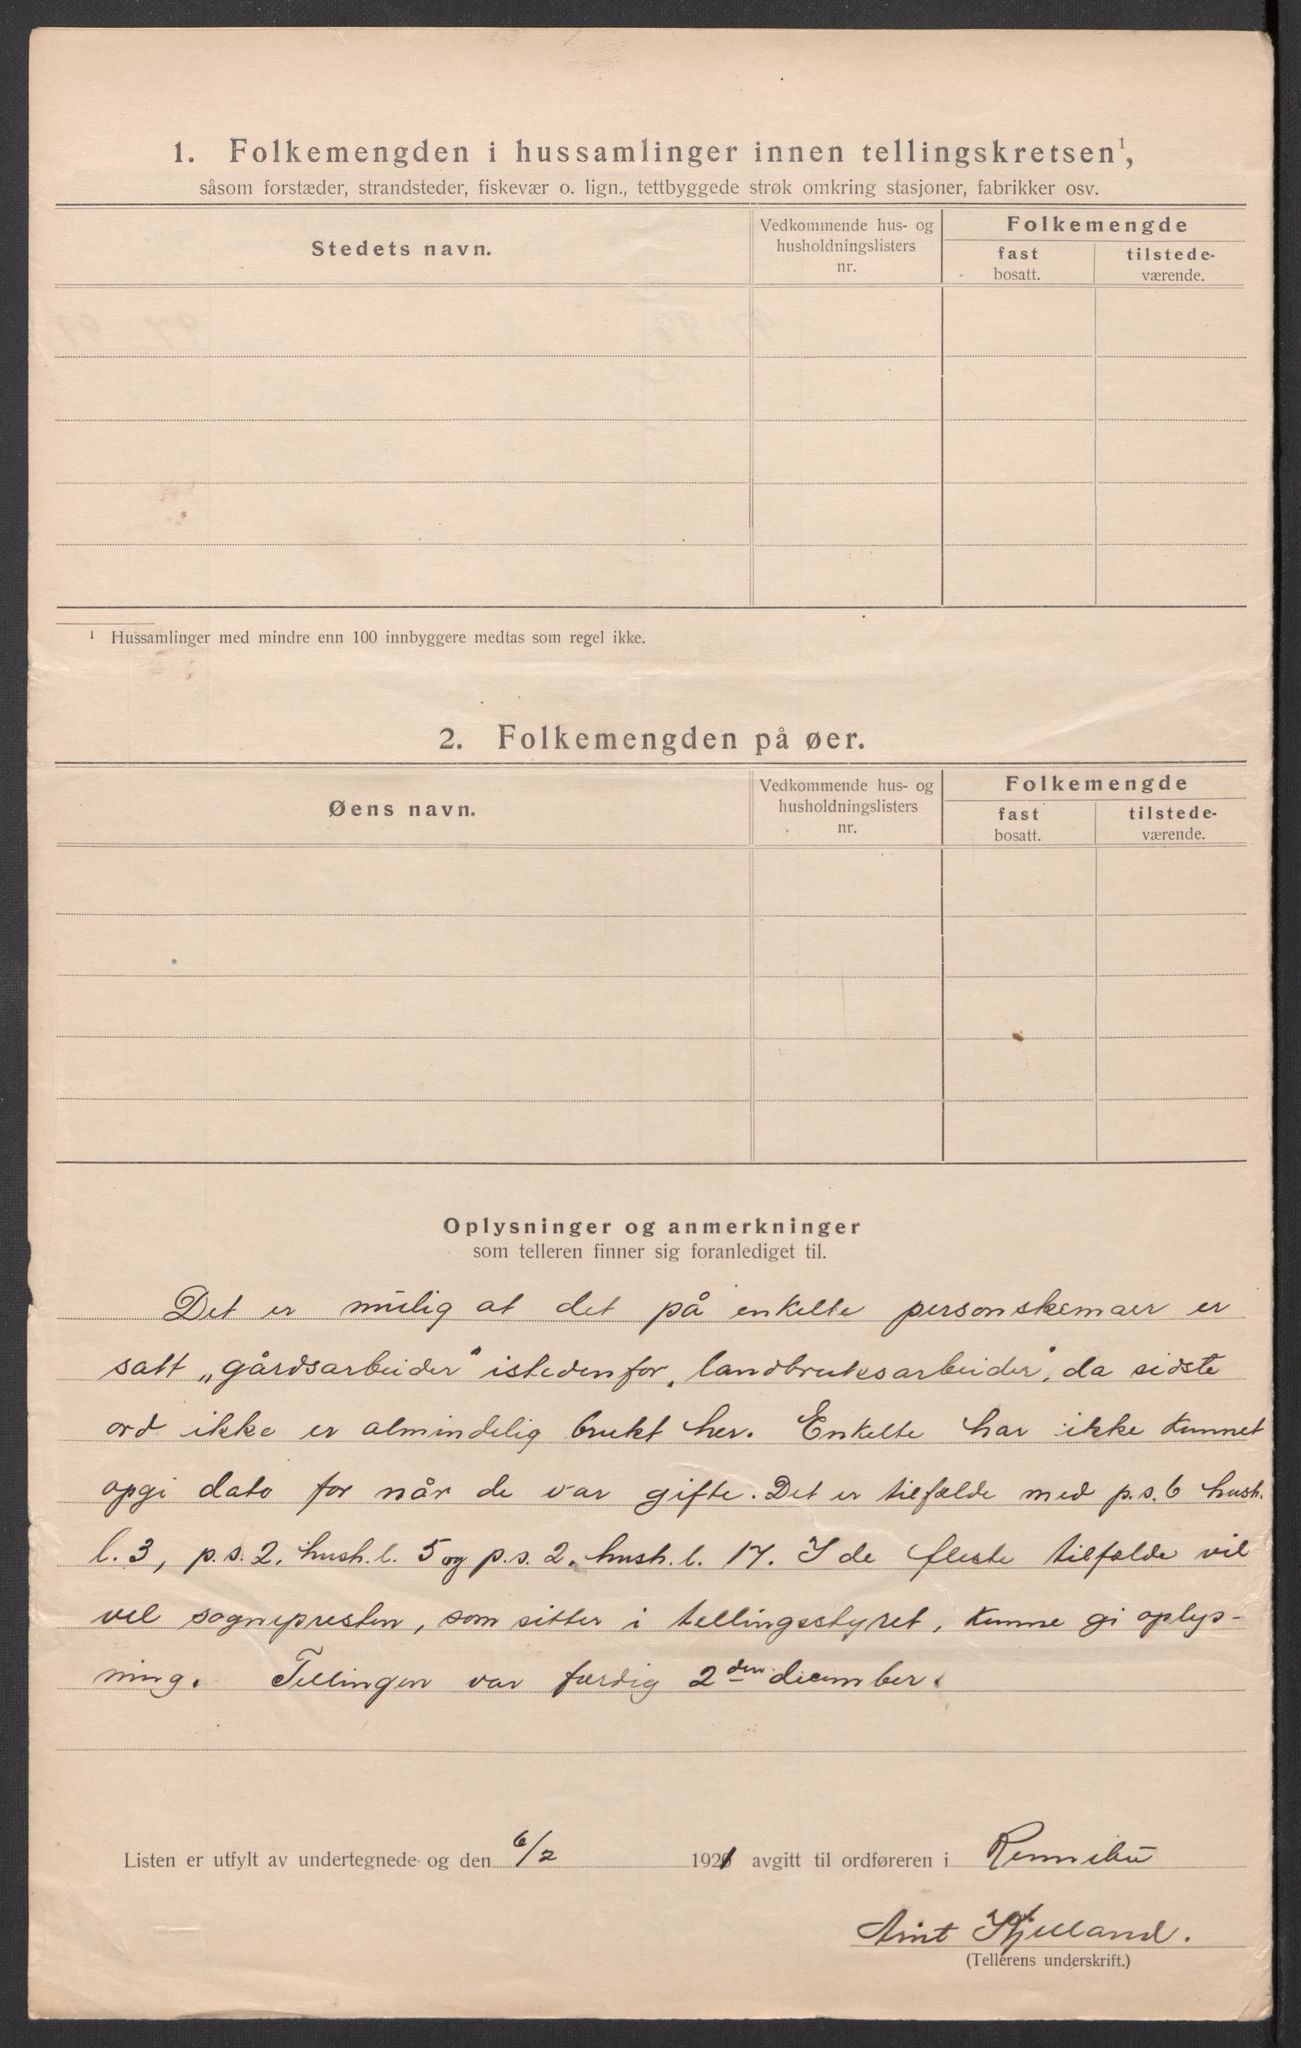 1. Folkemengden i hussamlinger innen tellingskretsen¹,
såsom forstæder, strandsteder, fiskevær o. lign., tettbyggede strøk omkring stasjoner, fabrikker osv.
Stedets navn.
Vedkommende hus- og
husholdningslisters
nr.
Folkemengde
fast
bosatt.
tilstede-
værende.
¹ Hussamlinger med mindre enn 100 innbyggere medtas som regel ikke.
2. Folkemengden på øer.
Øens navn.
Vedkommende hus- og
husholdningslisters
nr.
Folkemengde
fast
bosatt.
tilstede-
værende.
Oplysninger og anmerkninger
som telleren finner sig foranlediget til.
Det er mulig at det på enkelte personskemaer er
satt „gårdsarbeider" istedenfor „landbruksarbeider", da sidste
ord ikke er almindelig brukt her. Enkelte har ikke kunnet
opgi dato for når de var gifte. Det er tilfælde med p.s. 6 hush.
l. 3, p.s. 2. hush. l. 5 og p.s. 2. hush. l. 17. I de fleste tilfælde vil
vel sognepresten, som sitter i tellingsstyret, kunne gi oplys-
ning. Tellingen var færdig 2den december.
Listen er utfylt av undertegnede og den 6/2 1921 avgitt til ordføreren i Rennebu
Kjelland.
(Tellerens underskrift.)